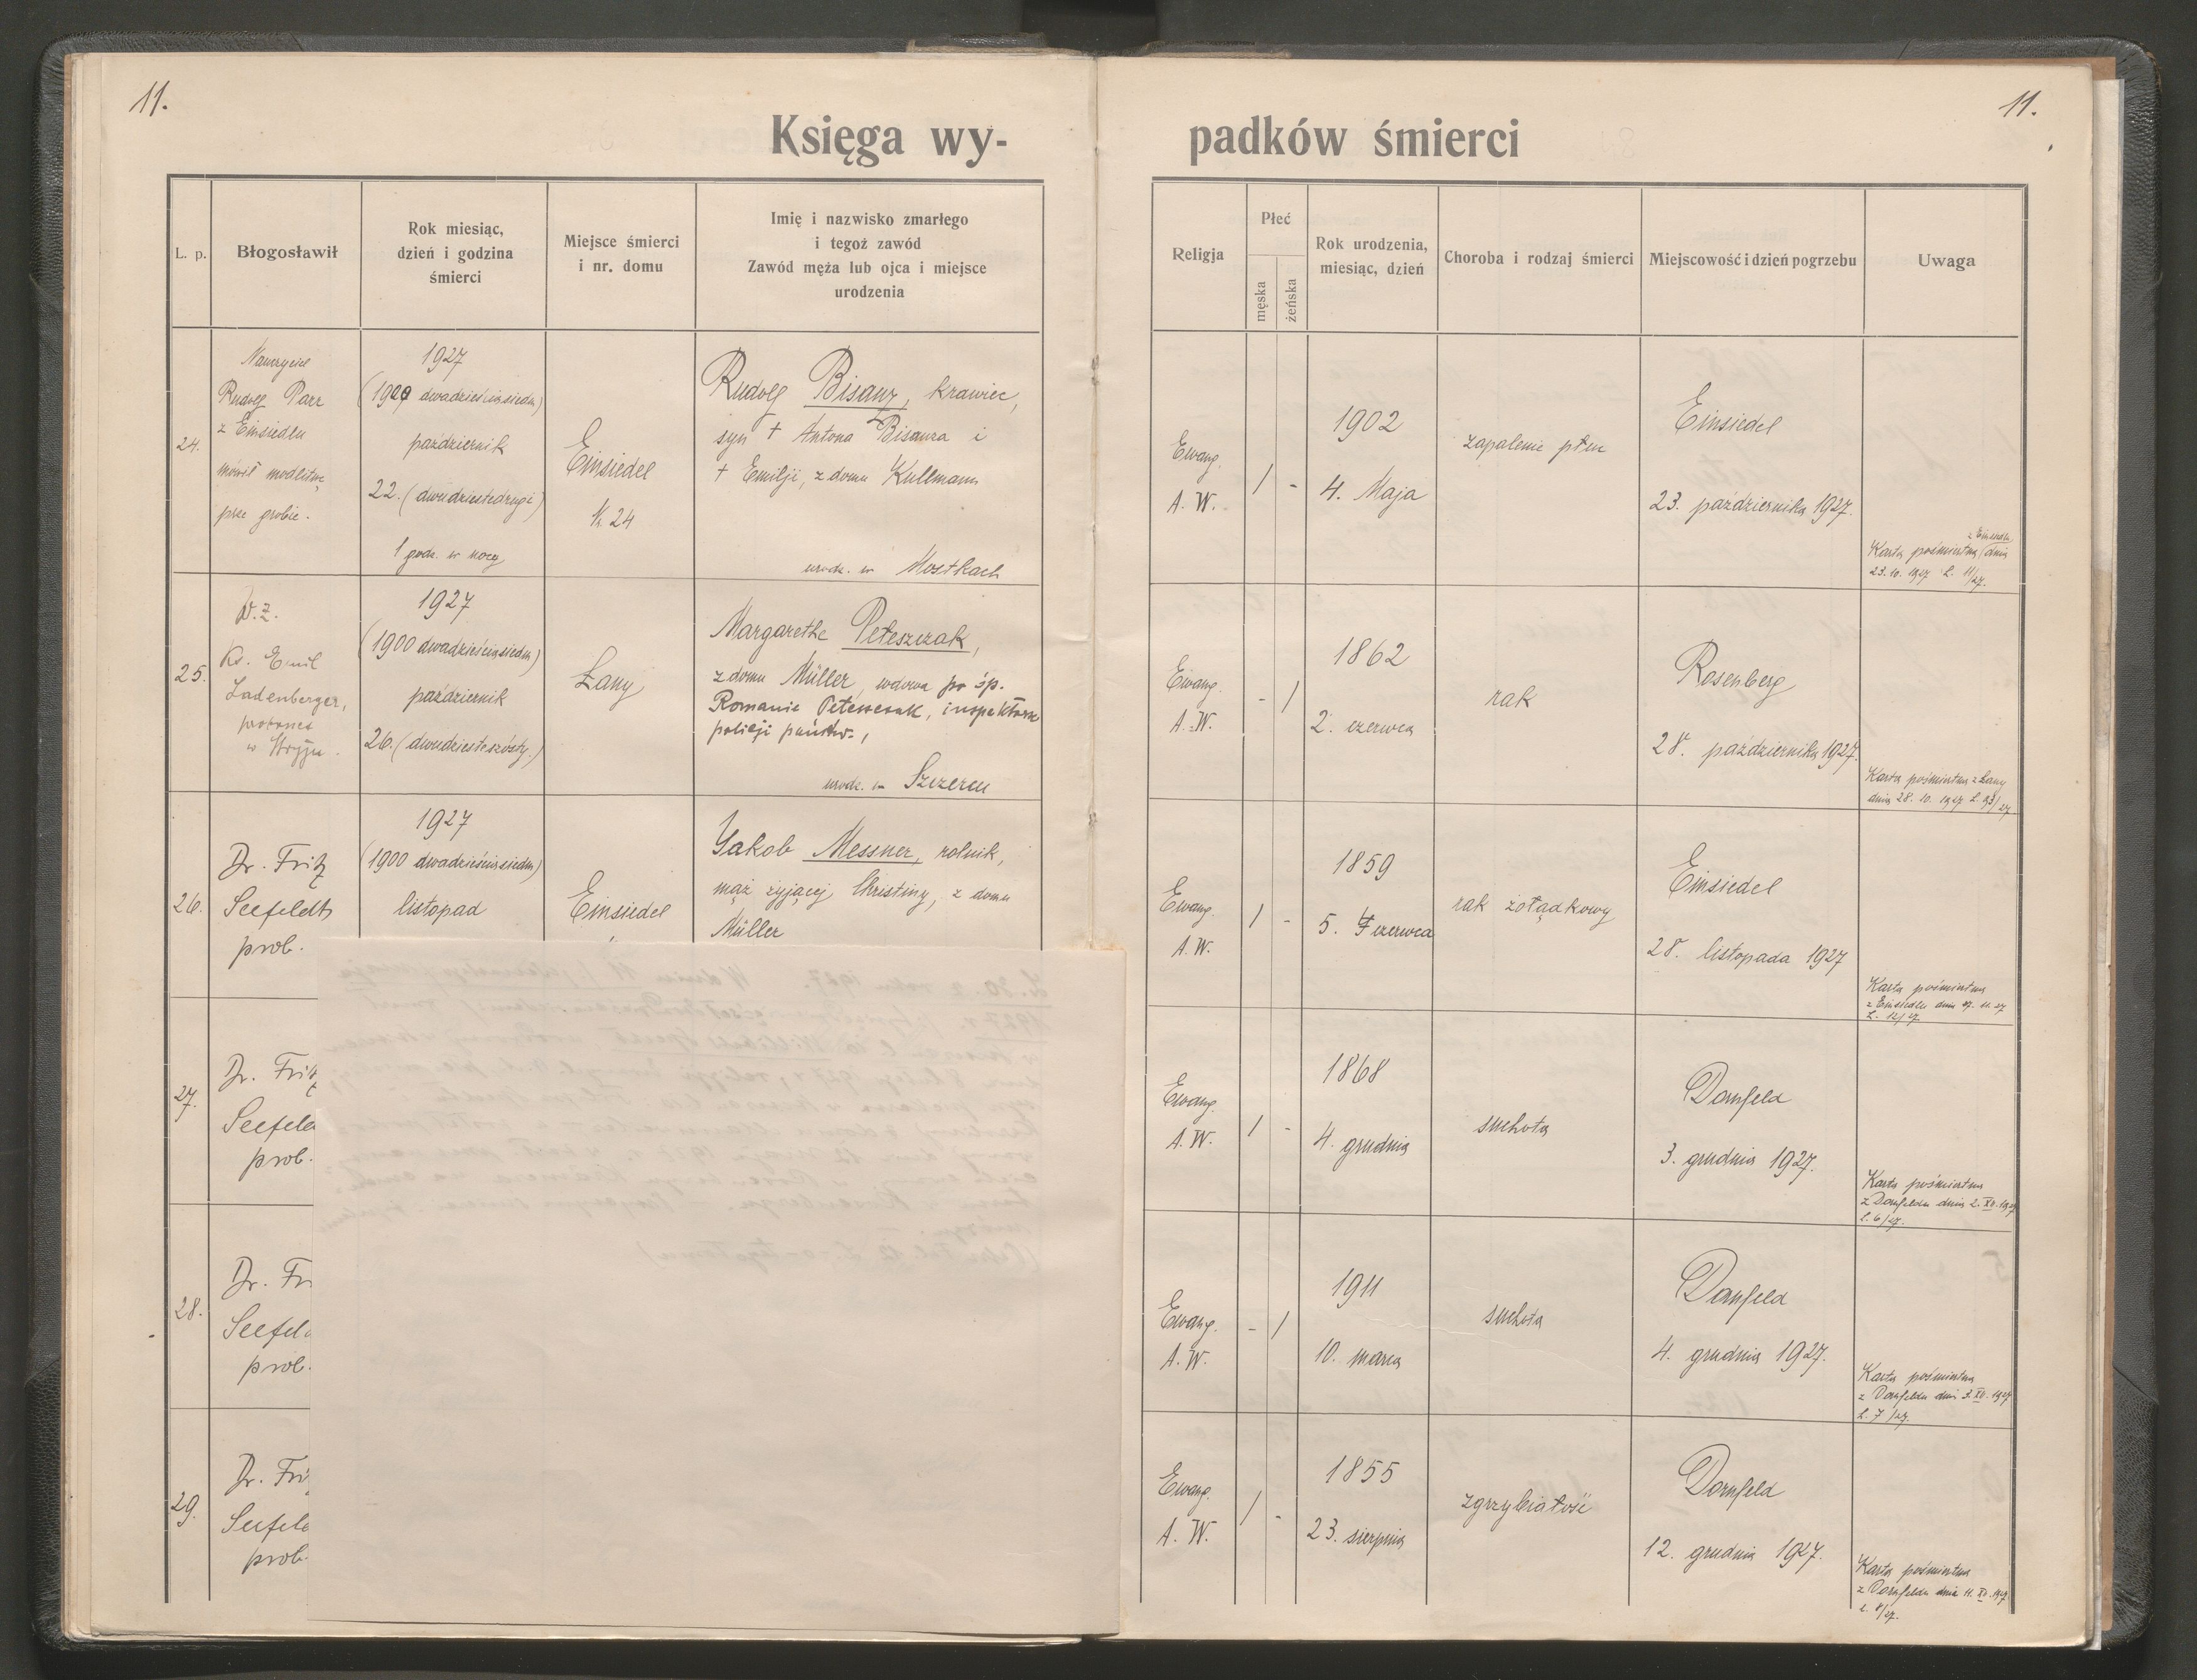 11.
11.
Księga wy-
padków śmierci
L. p.
Błogosławił
Rok miesiąc,
dzień i godzina
śmierci
Miejsce śmierci
i nr. domu
Imię i nazwisko zmarłego
i tegoż zawód
Zawód męża lub ojca i miejsce
urodzenia
Religja
Płeć
męska
żeńska
Rok urodzenia,
miesiąc, dzień
Choroba i rodzaj śmierci
Miejscowość i dzień pogrzebu
Uwaga
24.
Nauczyciel
Rudolf Parr
z Einsiedlu
mówił modlitwę
prze grobie.
1927
dwadzieściasiedm)
październik
22. (dwudziestedrugi)
1 godz. w nocy
Einsiedel
Nr. 24
Rudolf Bisanz, krawiec,
syn † Antona Bisanza i
† Emilji, z domu Kullmann
urodz. w Mostkach
Ewang.
A. W.
/ -
1902
4. Maja
zapalenie płuc
Einsiedel
23. października 1927.
z Einsiedlu
Karta pośmiertna dnia
23. 10. 1927 L. 11/27.
25.
W. z.
Ks. Emil
Ladenberger,
proboszcz
w Stryju.
1927
(1900 dwadzieściasiedm)
październik
26. (dwudziesteszósty.)
Łany
Margarethe Peteszczak,
z domu Müller, wdowa po śp.
Romanie Peteszczak, inspektorze
policji państw.,
urodz. w Szczercu
Ewang.
A. W.
- /
1862
2. czerwca
rak
Rosenberg
28. października 1927.
Karta pośmiertna z Łany
dnia 28. 10. 1927 L. 93/27
26.
Dr. Fritz
Seefeldt
prob.
1927
(1900 dwadzieściasiedm)
listopad
Einsiedel
Jakob Messner, rolnik,
mąż żyjącej Christiny, z domu
Müller
Ewang.
A. W.
/ -
1859
5. czerwca
rak żołądkowy
Einsiedel
28. listopada 1927
Karta pośmiertna
z Einsiedlu dnia 27. 11. 27
L. 12/27
27.
Dr. Fritz
Seefeld
prob.
Ewang.
A. W.
/ -
1868
4. grudnia
suchota
Dornfeld
3. grudnia 1927.
Karta pośmiertna
z Dornfeldu dnia 2. XII. 1927
L. 6/27.
28.
Dr. Fri
Seefel
prob.
Ewang.
A. W.
- /
1911
10. marca
suchota
Dornfeld
4. grudnia 1927.
Karta pośmiertna
z Dornfeldu dnia 3. XII. 1927
L. 7/27.
29.
Dr. Fri
Seefel
prob.
Ewang.
A. W.
/ -
1855
23. sierpnia
zgrzybiałość
Dornfeld
12. grudnia 1927.
Karta pośmiertna
z Dornfeldu dnia 11. XII. 1927
L. 8/27.